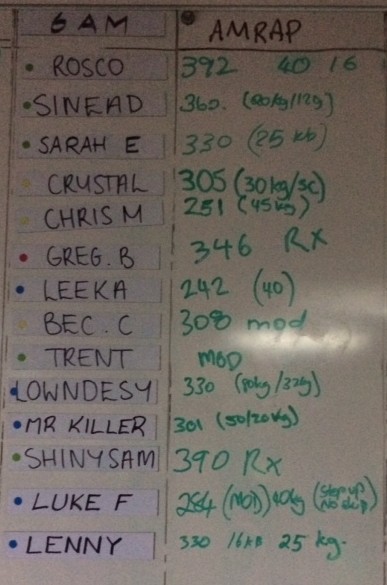 6 AM AMRAP
ROSCO 392 40 16
SINEAD 360. (20kg/12g)
SARAH E 330 (25 kb)
CRYSTAL 305 (30kg/sc)
CHRIS M 251 (45kg)
GREG. B 346 RX
LEEKA 242 (40)
BEC. C 308 mod
TRENT MOD
LOWNDESY 330 (40kg/32kg)
MR KILLER 301 (50/20kg)
SHINYSAM 390 RX
LUKE F 264 (MOD) 40kg (step up No skip)
LENNY 330 16KB 25 kg.